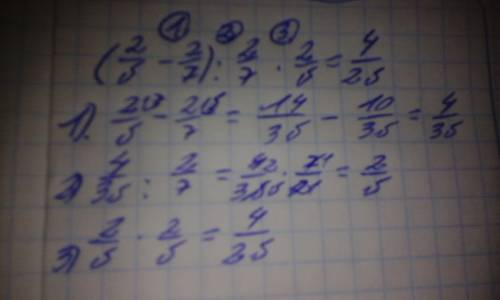 ① ② ③
(2/5 - 2/7) : 2/7 · 2/5 = 4/25
1). 2/5 - 2/7 = 14/35 - 10/35 = 4/35
2) 4/35 : 2/7 = 4/35 · 7/2 = 2/5
3) 2/5 · 2/5 = 4/25